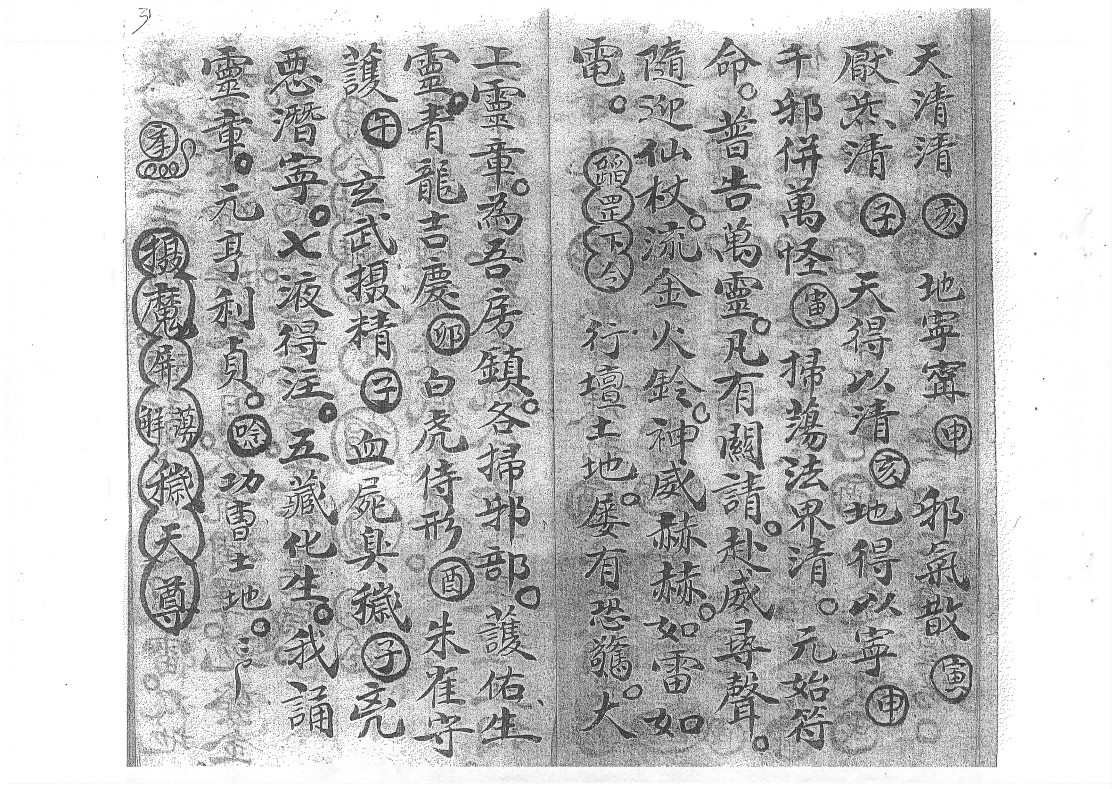 天清清 亥 地寧寧 申 邪氣散 寅
厭炁清 子 天得以清 亥 地得以寧 申
千邪併萬怪 寅 掃蕩法界清。元始符
命。普告萬靈。凡有關請。赴威尋聲。
隨迎仙杖。流金火鈴。神威赫赫。如雷如
電。蹈罡下令 行壇土地。屢有恐驚。大
工靈章。為吾房鎮。各掃邪部。護佑生
靈。青龍吉慶 卯 白虎侍形 酉 朱雀守
護 午 玄武摄精 子 血屍臭穢 子 亮
惡潛寧。七液得注。五藏化生。我誦
靈章。元亨利貞。唸 功曹土地。
摄魔屏蕩解穢天尊
31